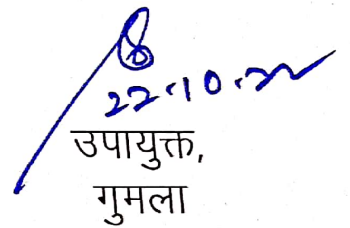 22.10.22
उपायुक्त,
गुमला